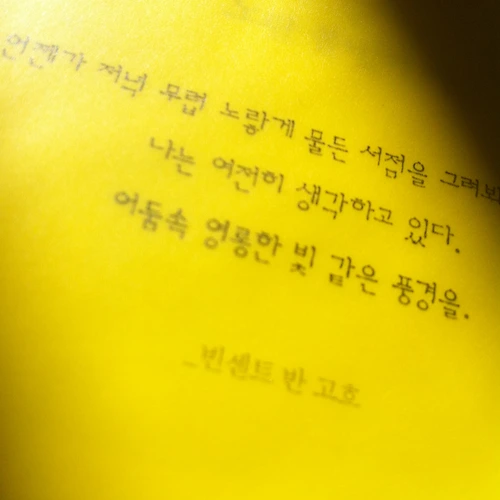 언젠가 저녁 무렵 노랗게 물든 서점을 그려보
나는 여전히 생각하고 있다.
어둠속 영롱한 빛 같은 풍경을.
_빈센트 반 고흐